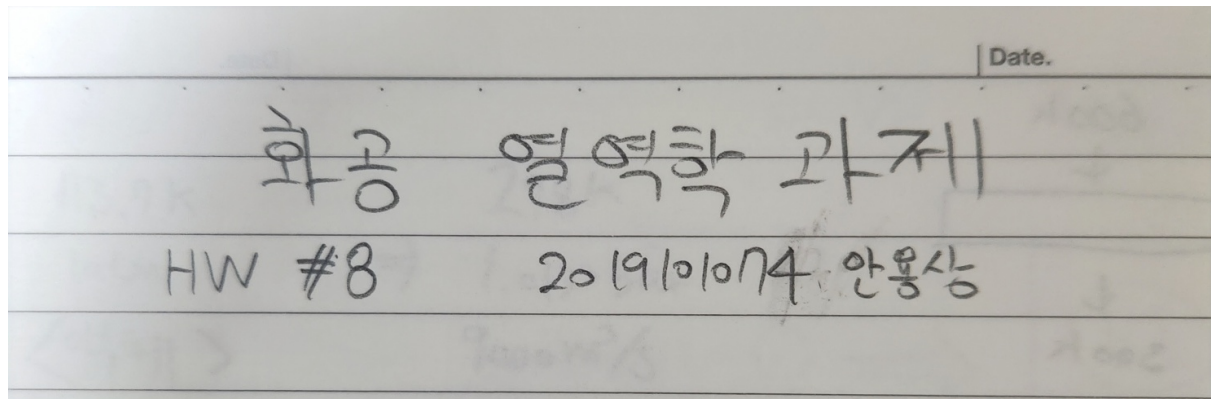 Date.
화공 열역학 과제
HW #8 2019101074 안용상